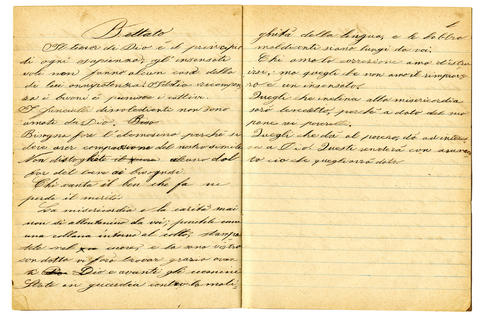 Dettato
Il timor di Dio è il principio
di ogni sapienza; gli insensate
vole non fanno alcun caso della
di lui onnipotenza. Iddio ricompen
sa i buoni e punisce i cattivi.
I fanciulli disobbedienti non sono
amati da Dio.
Bisogna fare l'elemosina perchè si
deve aver compassione del nostro simile
Non distogliete il
far del bene ai bisognosi.
Chi vanta il ben che fa ne
perde il merito.
La misericordia e la carità mai
non si allontanino da voi; ponetele come
una collana intorno al collo, stampa
tele nel cuore, e la
condotta vi farà trovar grazia avan
ti Dio e avanti gli uomini
State in guardia contro la mali
1
gnità della lingua, e le labbra
maldicenti siano lungi da voi.
Chi ama la correzione ama d'istru
irsi; ma quegli che non ama il rimprove
ro è un insensato.
Quegli che inclina alla misericordia
sarà benedetto, perchè a dato del suo
pane ai poveri.
Quegli che dà al povero, dà ad interes
se a Dio. Questi renderà con
ciò che quegli avrà dato